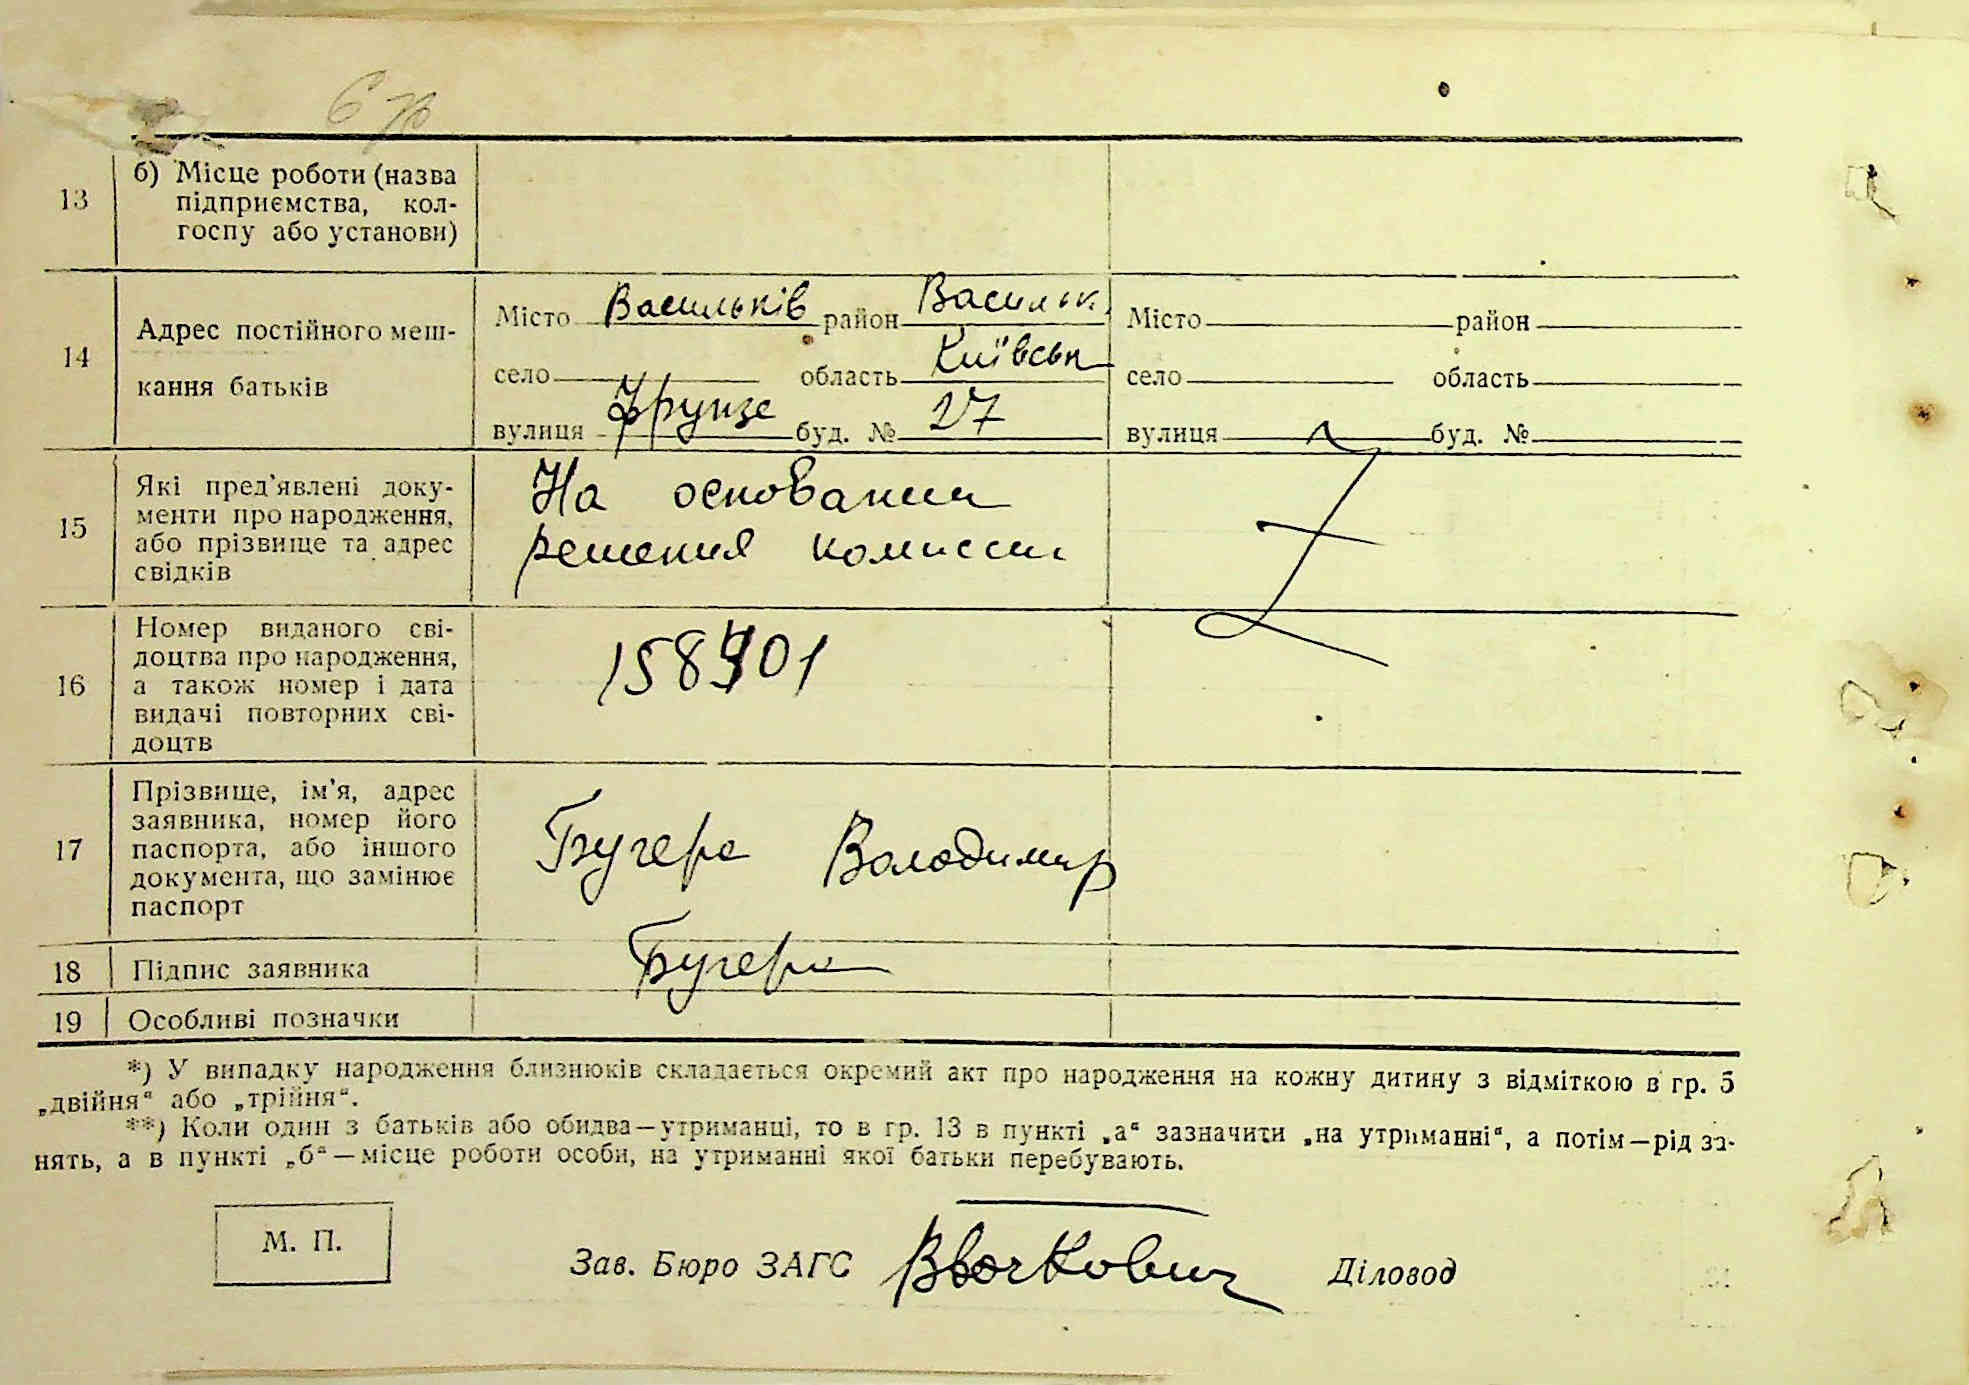 13 б) Місце роботи (назва
підприємства, кол-
госпу або установи)
14 Адрес постійного меш-
кання батьків
Місто Васильків район Васильк.
село область Київськ
вулиця Фрунзе буд. № 27
Місто район
село область
вулиця буд. №
15 Які пред'явлені доку-
менти про народження,
або прізвище та адрес
свідків
На основании
решения комиссии
16 Номер виданого сві-
доцтва про народження,
а також номер і дата
видачі повторних сві-
доцтв
17 Прізвище, ім'я, адрес
заявника, номер його
паспорта, або іншого
документа, що замінює
паспорт
Бугера Володимир
18 Підпис заявника Бугера
19 Особливі позначки
*) У випадку народження близнюків складається окремий акт про народження на кожну дитину з відміткою в гр. 5
„двійня“ або „трійня“.
**) Коли один з батьків або обидва—утриманці, то в гр. 13 в пункті „а“ зазначити „на утриманні“, а потім—рід за-
нять, а в пункті „б“—місце роботи особи, на утриманні якої батьки перебувають.
М. П.
Зав. Бюро ЗАГС Діловод